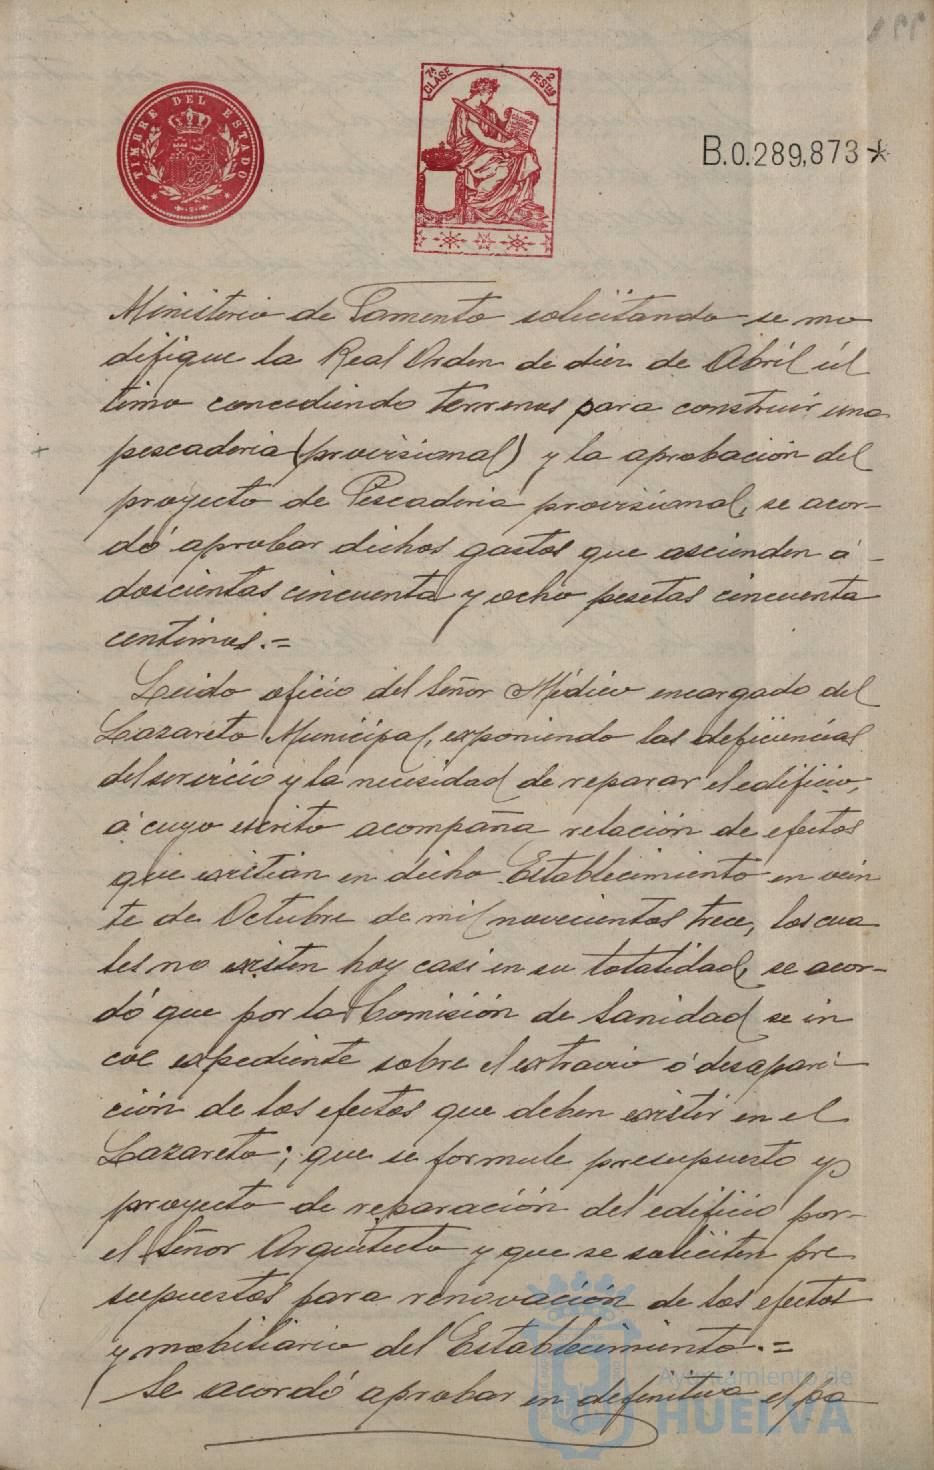 TIMBRE DEL ESTADO
7ª CLASE 2 PESTAS
B.0.289,873*
Ministerio de Fomento solicitando se mo
difique la Real Orden de diez de Abril úl
timo concediendo terrenos para construir una
pescaderia (provisional) y la aprobación del
proyecto de Pescaderia provisional, se acor-
dó aprobar dichos gastos que ascienden á
doscientas cincuenta y ocho pesetas cincuenta
centimos.=
Leido oficio del Señor Médico encargado del
Lazareto Municipal, exponiendo las deficiencias
del servicio y la necesidad de reparar el edificio,
á cuyo escrito acompaña relación de efectos
que existian en dicho Establecimiento en vein
te de Octubre de mil novecientos trece, los cua
les no existen hoy casi en su totalidad, se acor-
dó que por la Comisión de Sanidad se in
coe expediente sobre el extravio ó desapari-
ción de los efectos que deben existir en el
Lazareto; que se formule presupuesto y
proyecto de reparación del edificio por-
el Señor Arquitecto y que se soliciten pre
supuestos para renovación de los efectos
y mobiliario del Establecimiento.=
Se acordó aprobar en definitiva el pa
Ayuntamiento de
HUELVA